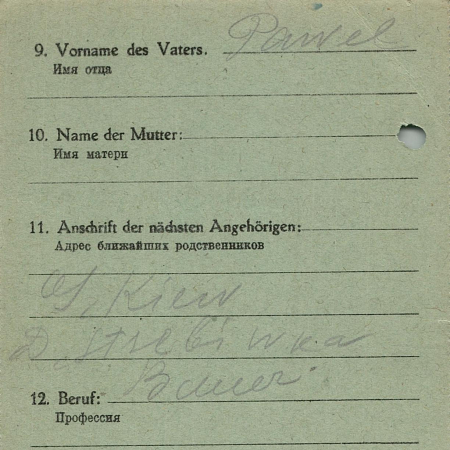 9. Vorname des Vaters. Pawel
Имя отца
10. Name der Mutter:
Имя матери
11. Anschrift der nächsten Angehörigen:
Адрес ближайших родственников
Kiew
D. Strebiwka
12. Beruf: Bauer.
Профессия